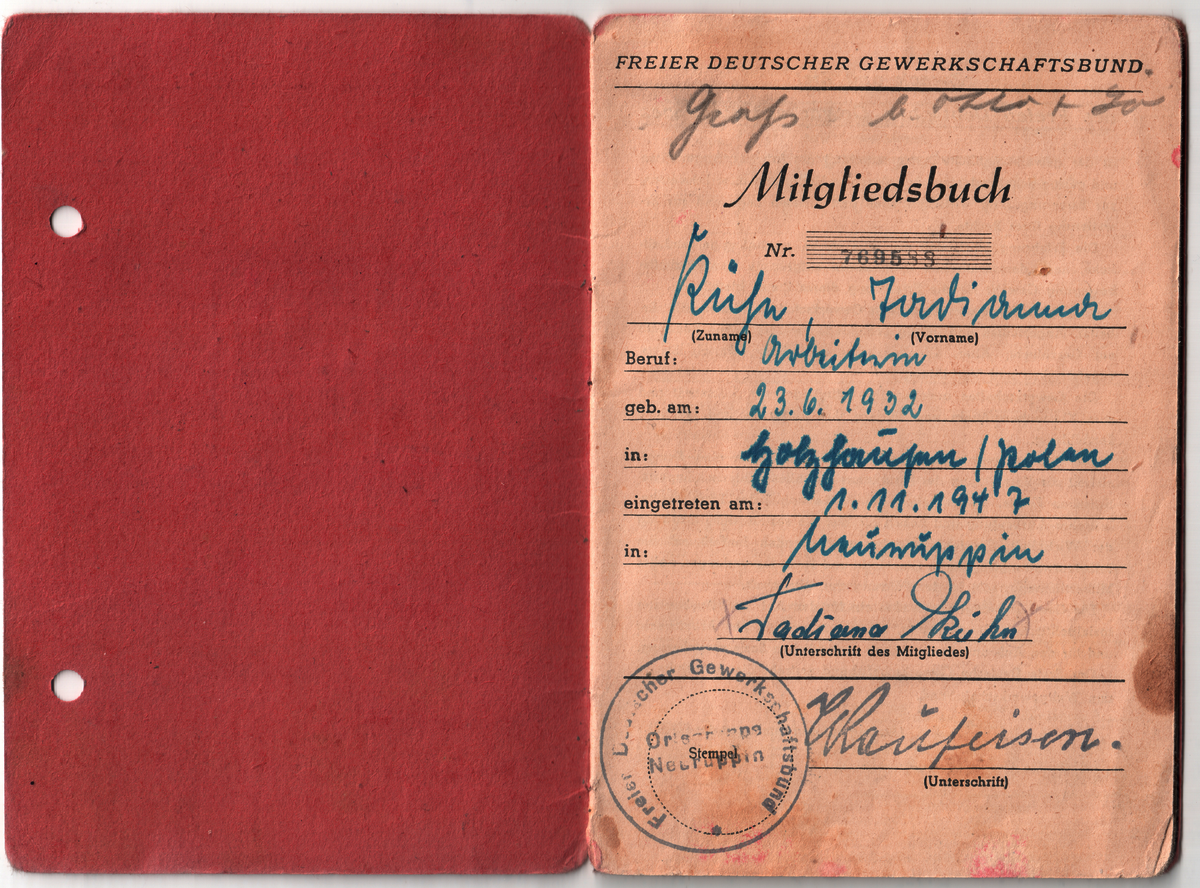 FREIER DEUTSCHER GEWERKSCHAFTSBUND.
Mitgliedsbuch
Nr. 769583
Kühn, Tadianna
(Zuname) (Vorname)
Beruf: Arbeiterin
geb. am: 23.6.1932
in: Holzhausen / Polen
eingetreten am: 1.11.1947
in: Neuruppin
Tadiana Kühn
(Unterschrift des Mitgliedes)
Freier Deutscher Gewerkschaftsbund
Ortsgruppe
Stempel
Neuruppin
(Unterschrift)